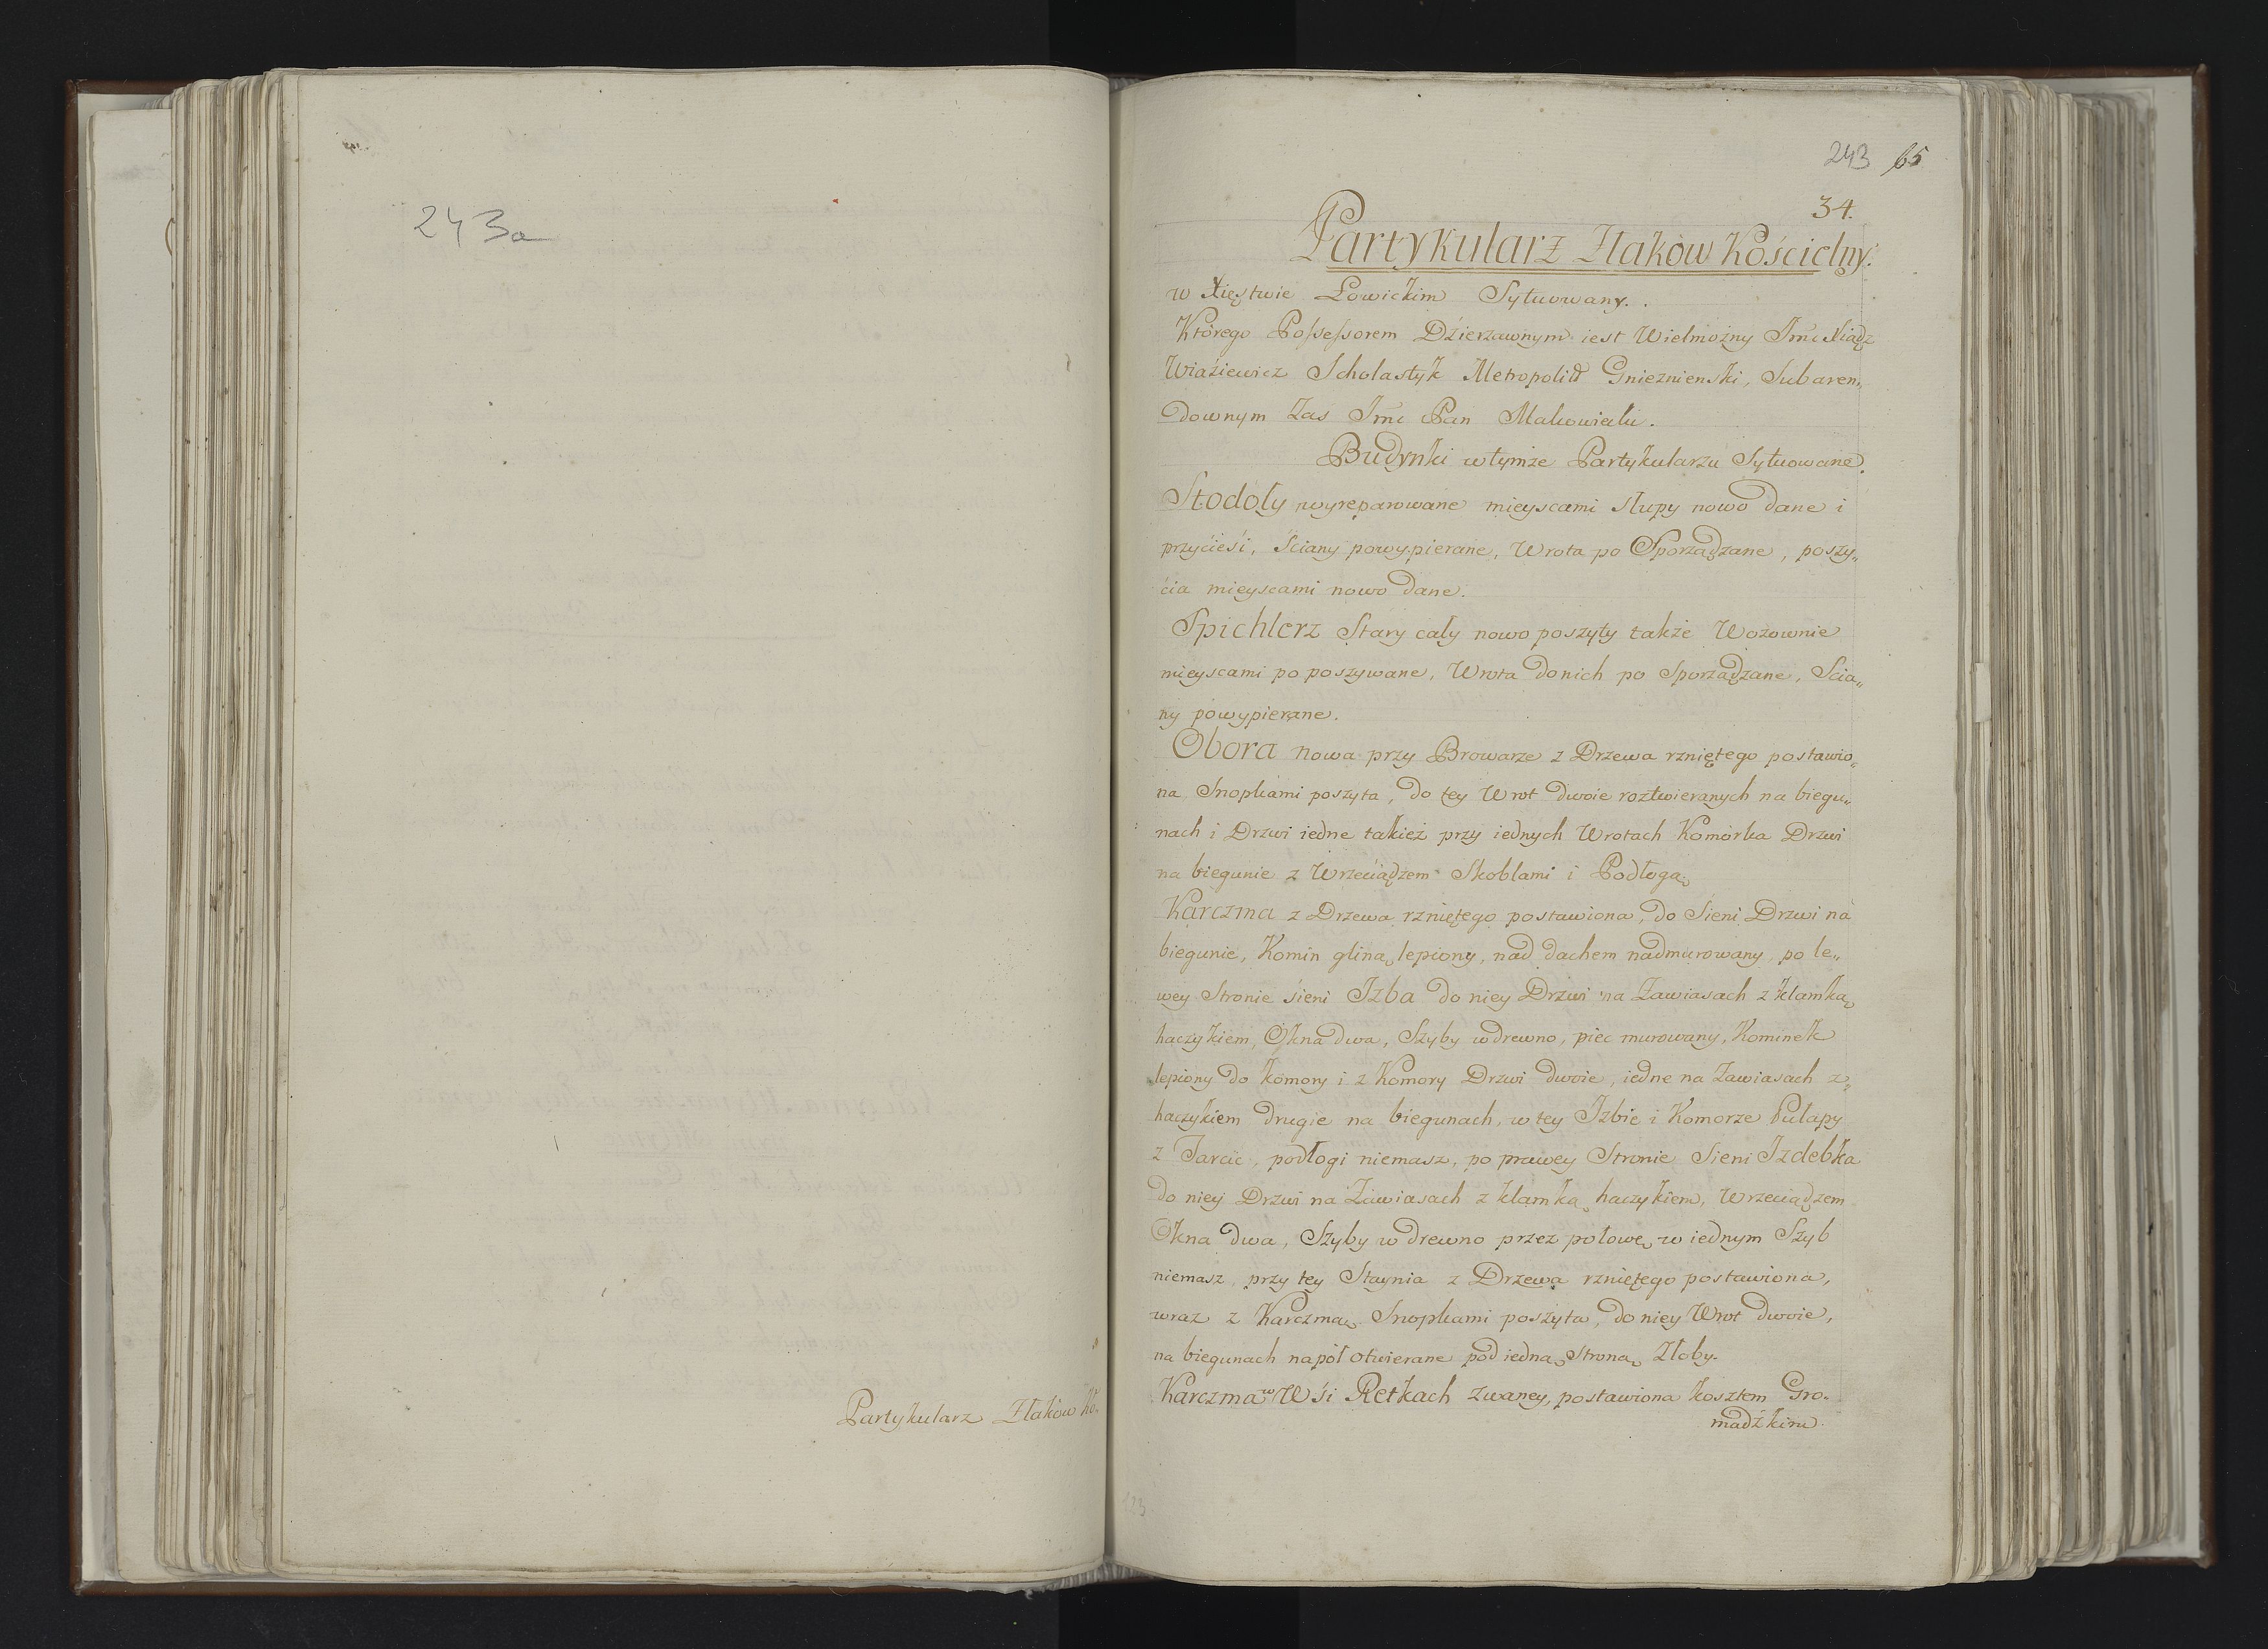 243a
Partykularz Złaków Ko.
243 65
34.
Partykularz Złaków Kościelny.
w Xięstwie Łowickim Sytuowany.
Którego Possessorem Dzierzawnym iest Wielmożny Jmć Xiądz
Wiaźiewicz Scholastyk Metropolit Gnieznienski, Subaren„
downym Zas Jmć Pan Makowiecki.
Budynki wtymże Partykularzu Sytuowane.
Stodoły wyreparowane mieyscami słupy nowo dane i
przyćieśi, Sciany powypierane, Wrota po Sporządzane, poszy„
ćia mieyscami nowo dane.
Spichlerz Stary cały nowo poszyty także Wozownie
mieyscami po poszywane, Wrota do nich po Sporządzane, Scia„
ny powypierane.
Obora nowa przy Browarze z Drzewa rzniętego postawio„
na Snopkami poszyta, do tey Wrot dwoie roztwieranych na biegu„
nach i Drzwi iedne takież przy iednych Wrotach Komorka Drzwi
na biegunie z Wrzeciądzem Skoblami i Podłogą
Karczma z Drzewa rzniętego postawiona, do Sieni Drzwi na
biegunie, Komin gliną lepiony, nad dachem nadmurowany, po le„
wey Stronie śieni Izba do niey Drzwi na Zawiasach z klamką
haczykiem, Okna dwa, Szyby w drewno, piec murowany, Kominek
lepiony do komory i z Komory Drzwi dwoie, iedne na Zawiasach z
haczykiem drugie na biegunach, w tey Izbie i Komorze Pułapy
z Tarcic, podłogi niemasz, po prawey Stronie Sieni Izdebka
do niey Drzwi na Zawiasach z klamką haczykiem, Wrzeciądzem
Okna dwa, Szyby w drewno przez połowę w iednym Szyb
niemasz, przy tey Staynia z Drzewa rzniętego postawiona,
wraz z Karczmą Snopkami poszyta, do niey Wrot dwoie,
na biegunach napół otwierane pod iedną Stroną Żłoby.
Karczma w Wśi Retkach zwaney, postawiona kosztem Gro„
madźkim.